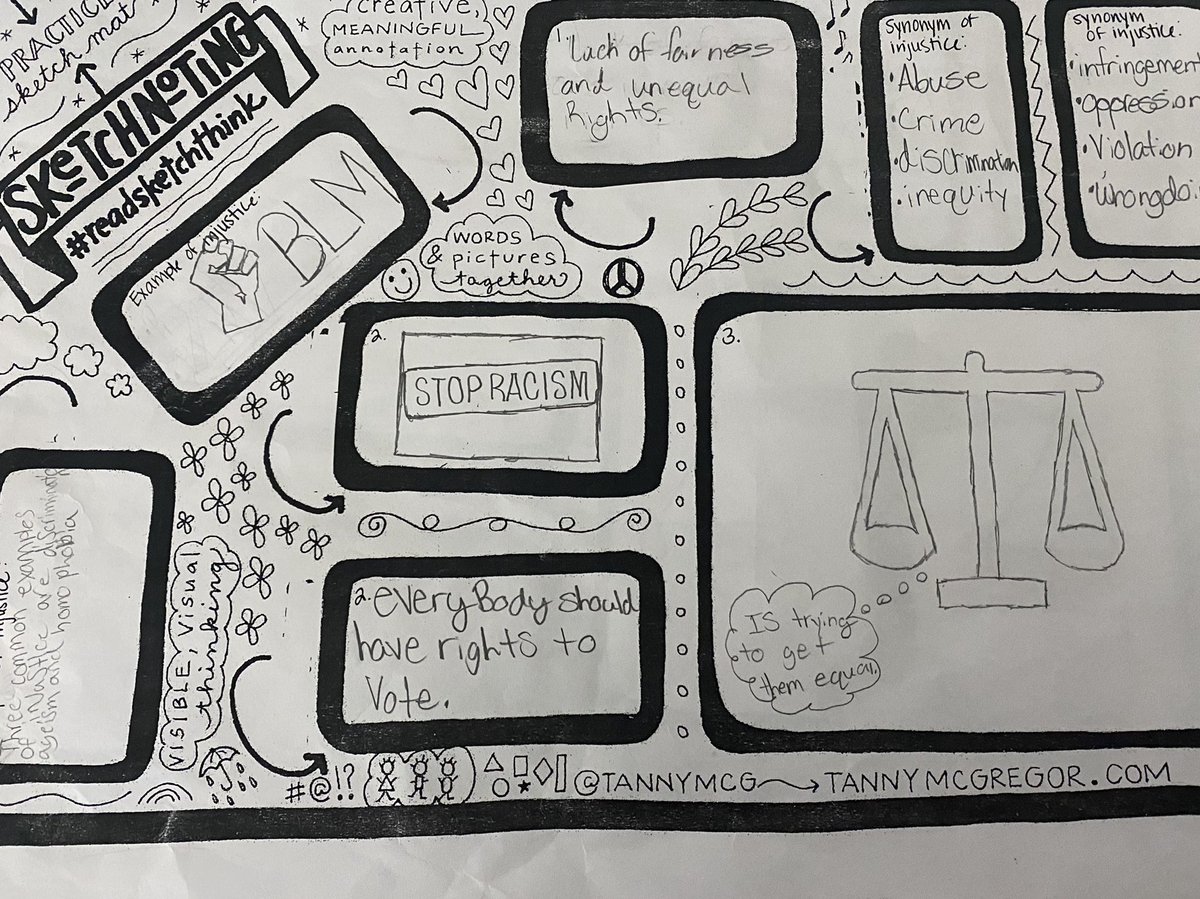 PRACTICE
sketch mat
SKETCHNOTING
#readsketchthink
creative,
MEANINGFUL
annotation
Example of injustice:
BLM
WORDS
& pictures
together
1. Lack of fairness
and unequal
Rights.
Synonym of
injustice:
•Abuse
•Crime
•discrimination
•inequity
Synonym
of injustice:
•infringement
•oppression
•Violation
•
2.
STOP RACISM
3.
IS trying
to get
them equal.
Three common examples
of inJuStice are discriminating
ageism and homo phobia
VISIBLE, VISUAL
thinking
2. everyBody should
have rights to
Vote.
#@!?
@TANNYMCG
TANNYMCGREGOR.COM